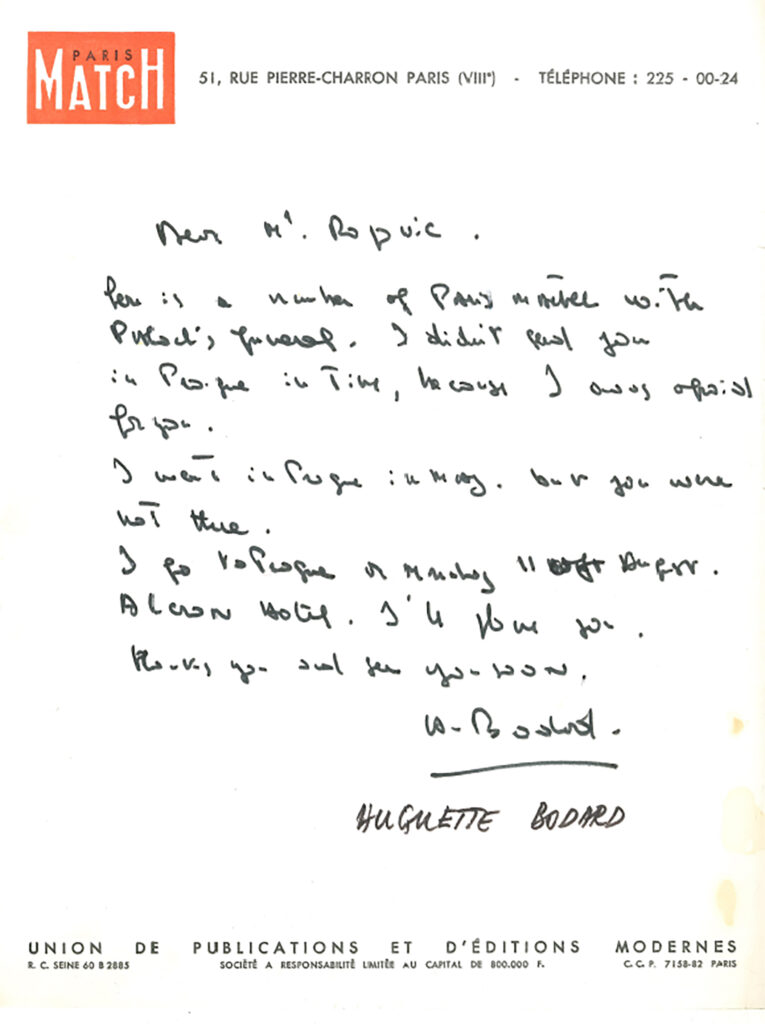 PARIS
MATCH
51, RUE PIERRE-CHARRON PARIS (VIIIe) - TÉLÉPHONE : 225 - 00-24
Dear Mr.
here is a number of Paris Match with
funeral. I didn't send you
in Prague in Time, because I was afraid
for you.
I went in Prague in May. but you were
not there.
I go to Prague on Monday 11 August.
Alcron Hotel. I'll phone you.
Thanks you and see you soon.
H. Bodard.
HUGUETTE BODARD
UNION DE PUBLICATIONS ET D'ÉDITIONS MODERNES
R. C. SEINE 60 B 2885 SOCIÉTÉ A RESPONSABILITÉ LIMITÉE AU CAPITAL DE 800.000 F. C. C. P. 7158-82 PARIS